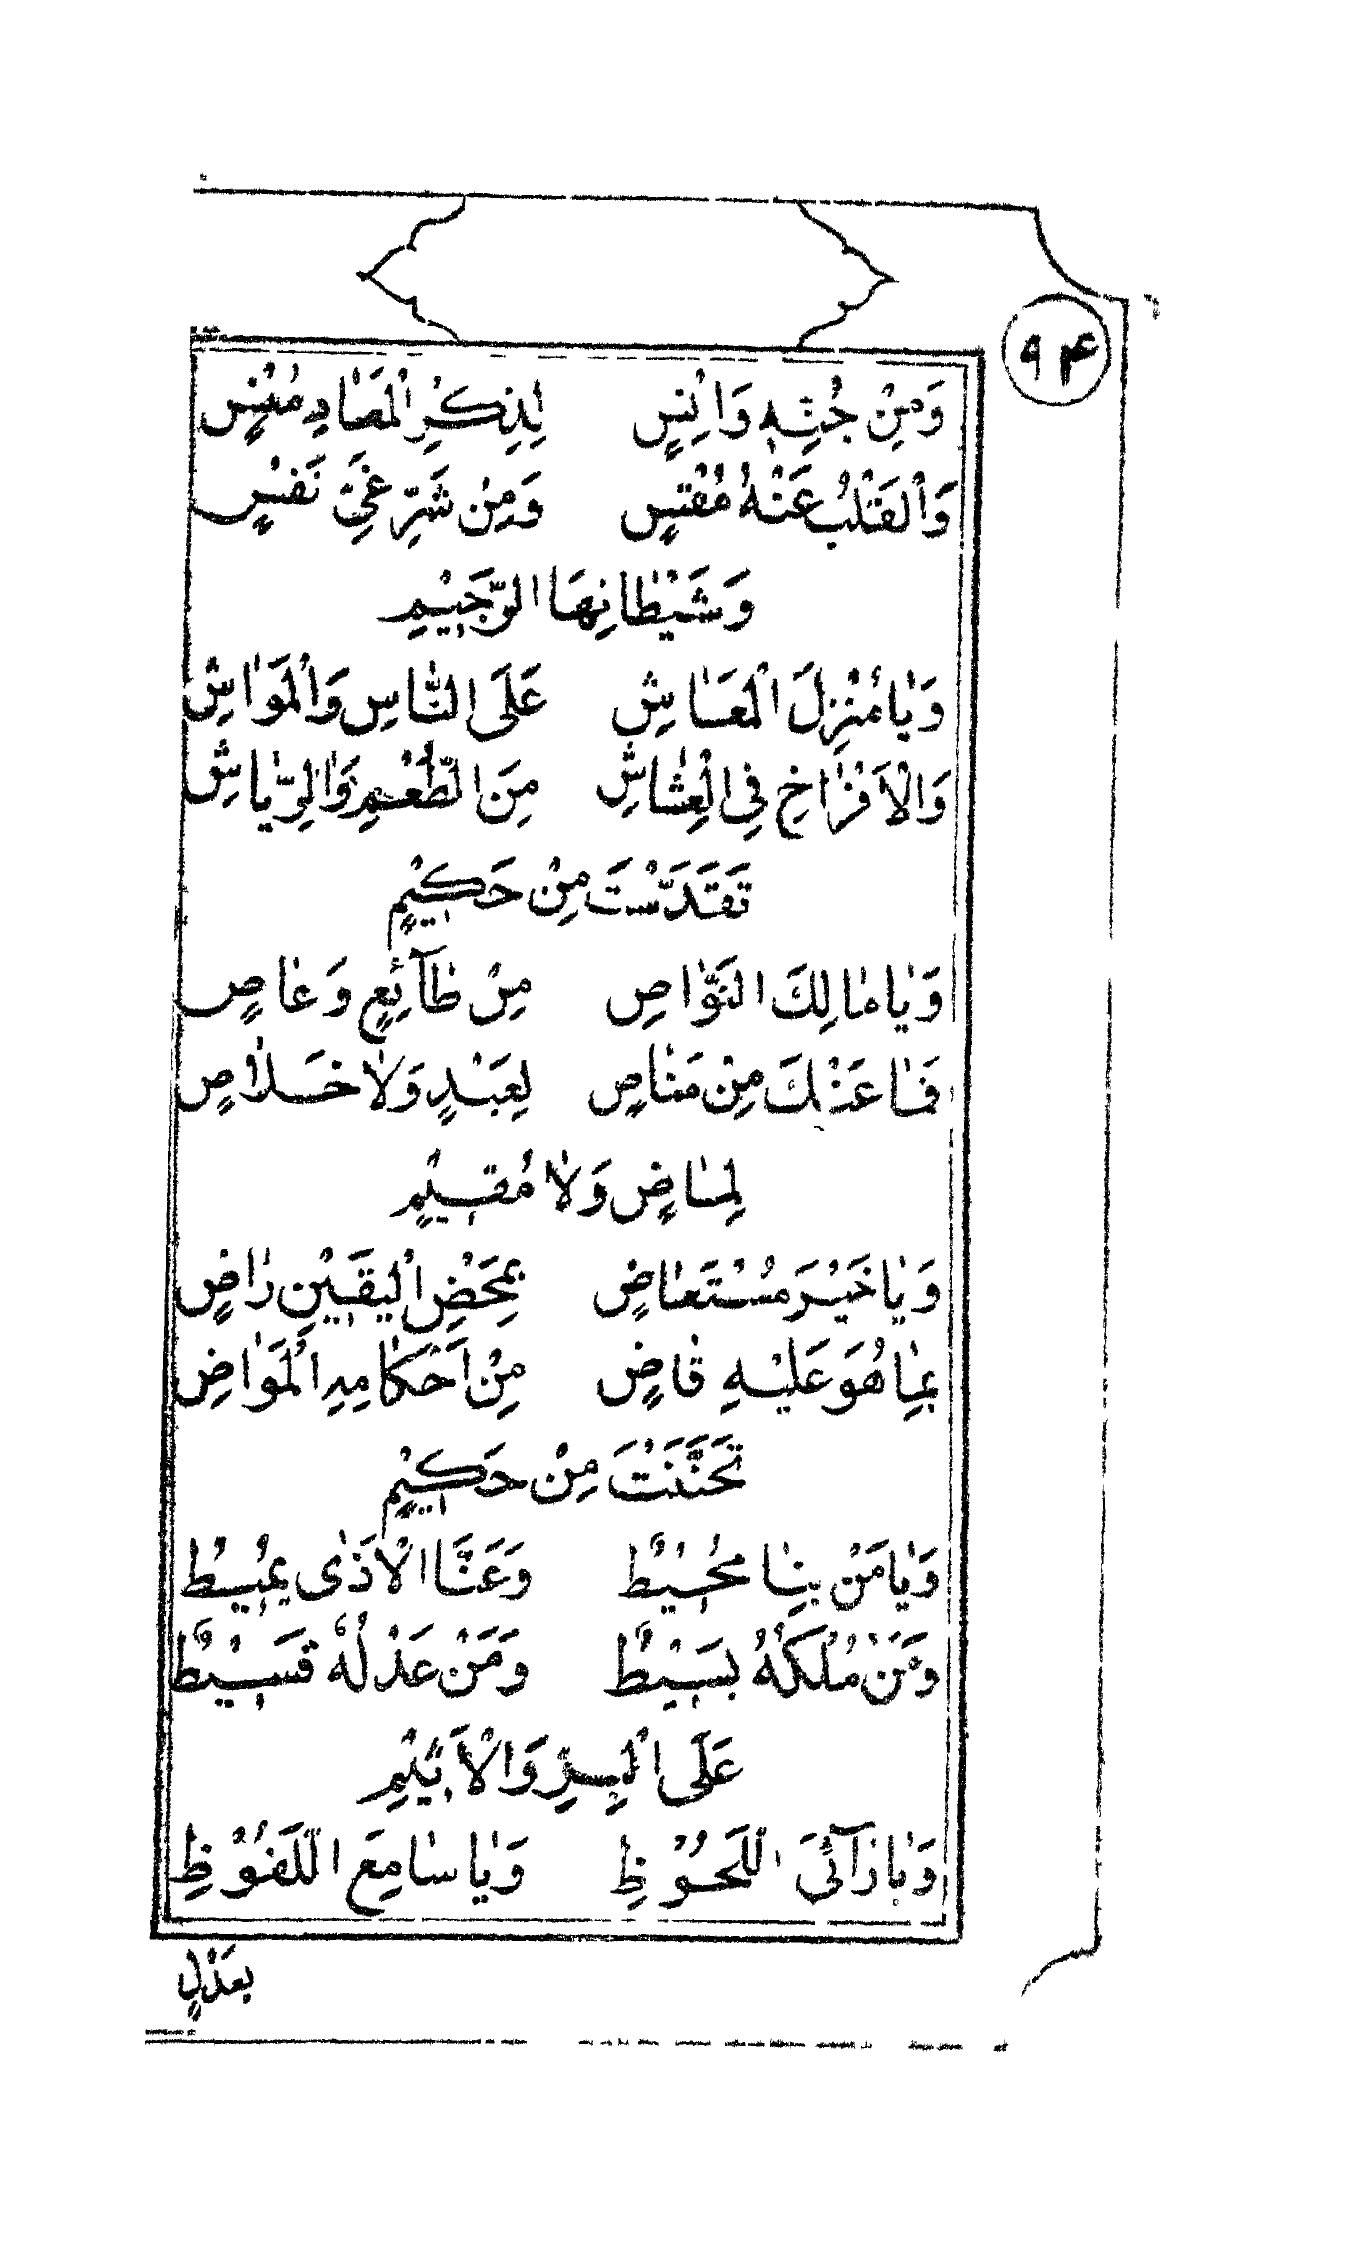 ۹۴
وَمِنْ جُنِّهٖ وَاِنْسٍ لِذِكْرِ الْمَصَادِ مُنْسٍ
وَالْقَلْبُ عَنْهُ مُقْسٍ وَمِنْ شَرِّ غَيِّ نَفْسٍ
وَشَيْطَانِهَا الرَّجِيْمِ
وَيَا مُنْزِلَ الْمَعَاشِ عَلَى النَّاسِ وَالْمَوَاشِ
وَالْاَفْرَاخِ فِى الْعِشَاشِ مِنَ الطُّعْمِ وَالرِّيَاشِ
تَقَدَّسْتَ مِنْ حَكِيْمٍ
وَيَا مَالِكَ النَّوَاصِ مِنْ طَآئِعٍ وَعَاصٍ
فَمَا عَنْكَ مِنْ مَنَاصٍ لِعَبْدٍ وَلَا خَلَاصٍ
لِمَاضٍ وَلَا مُقِيْمٍ
وَيَا خَيْرَ مُسْتَعَاضٍ بِمَحْضِ الْيَقِيْنِ رَاضٍ
بِمَا هُوَ عَلَيْهِ قَاضٍ مِنْ اَحْكَامِهِ الْمَوَاضِ
تَحَنَّنْتَ مِنْ حَكِيْمٍ
وَيَا مَنْ بِنَا مُحِيْطٌ وَعَنَّا الْاَذٰى يُمِيْطُ
وَمَنْ مُلْكُهُ بَسِيْطٌ وَمَنْ عَدْلُهُ قَسِيْطٌ
عَلَى الْبِرِّ وَالْاَثِيْمِ
وَيَا رَآئِىَ اللَّحُوْظِ وَيَا سَامِعَ اللَّفُوْظِ
بعَدْلٍ